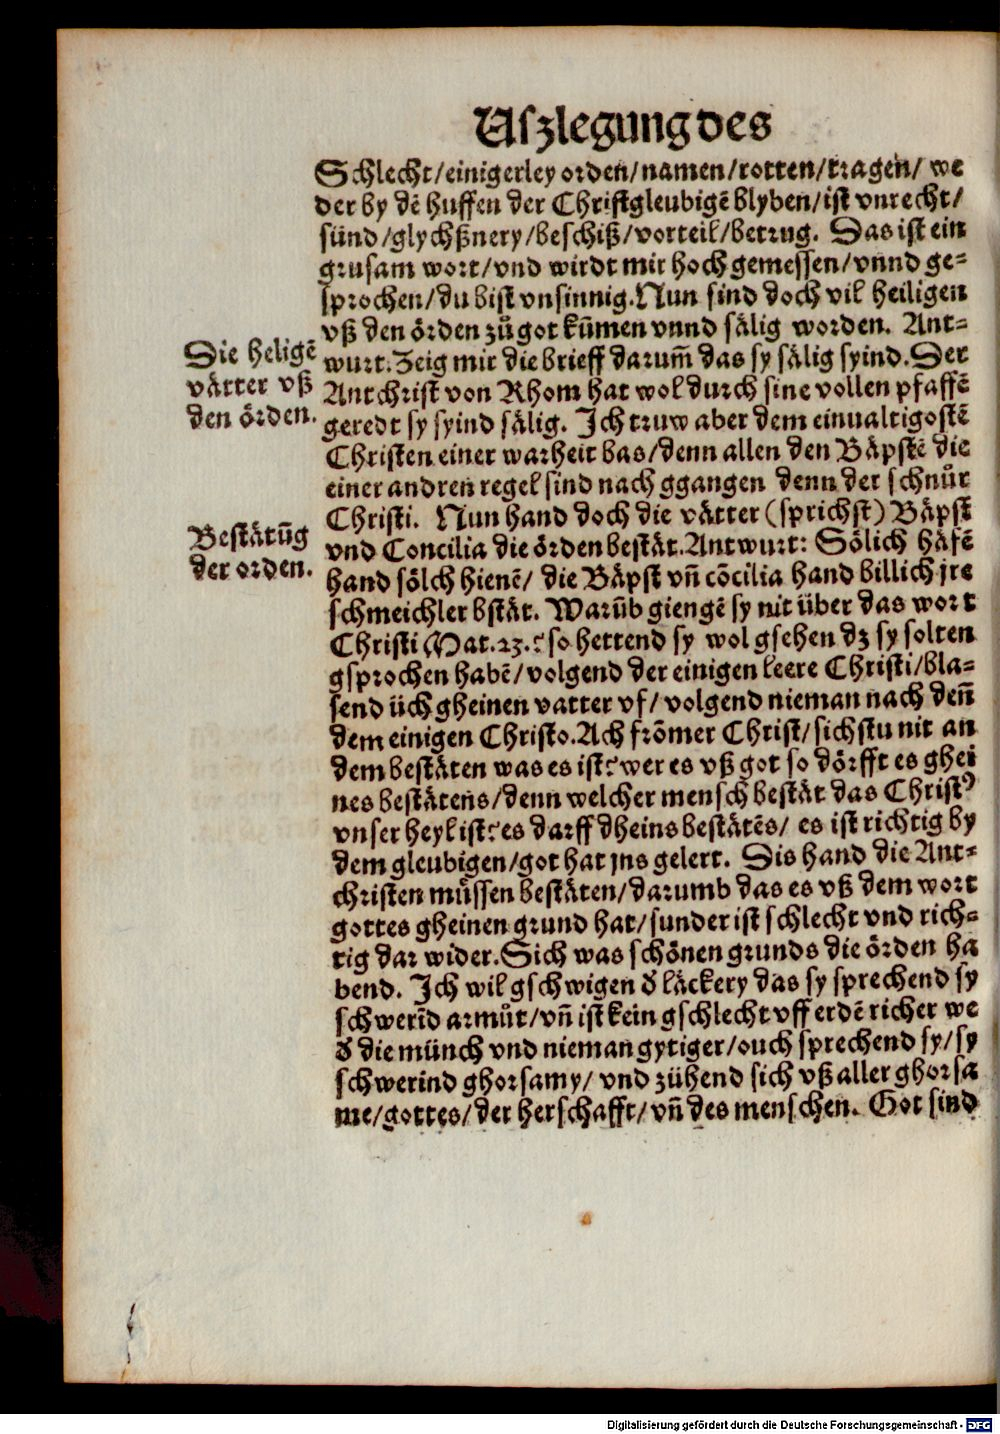 Uſzlegung des
Schlecht/einigerley orden/namen/rotten/tragen/ we
der by dē huffen der Chriſtgleubigē blyben/iſt vnrecht/
ſünd/glychßnery/beſchiß/vorteil/betrug. Das iſt ein
gruſam wort/vnd wirdt mir hoch gemeſſen/vnnd ge⸗
ſprochen/du biſt vnſinnig. Nun ſind doch vil heiligen
vß den örden zů got kūmen vnnd ſälig worden. Ant⸗
Die heligē
vätter vß
den örden.
wurt. Zeig mir die brieff darum̄ das ſy ſälig ſyind. Der
Antchriſt von Rhom hat wol durch ſine vollen pfaffē
geredt ſy ſyind ſälig. Ich truw aber dem einualtigoſtē
Chriſten einer warheit bas/denn allen den Bäpſtē die
einer andren regel ſind nach ggangen denn der ſchnůr
Chriſti. Nun hand doch die vätter (ſprichſt) Bäpſt
Beſtätūg
der orden.
vnd Concilia die örden beſtät. Antwurt: Sölich häfē
hand ſölch hienē/ die Bäpſt vn̄ cōcilia hand billich jre
ſchmeichler bſtät. Warūb giengē ſy nit über das wort
Chriſti Mat. 23.? ſo hettend ſy wol gſehen dz ſy ſolten
gſprochen habē/volgend der einigen leere Chriſti/bla⸗
ſend üch gheinen vatter vf/ volgend nieman nach den̄
dem einigen Chriſto. Ach frömer Chriſt/ſichſtu nit an
dem beſtäten was es iſt? wer es vß got ſo dörfft es ghei
nes beſtätens/denn welcher menſch beſtät das Chriſtꝰ
vnſer heyl iſt? es darff dheins beſtätēs/ es iſt richtig by
dem gleubigen/got hat jns gelert. Dis hand die Ant⸗
chriſten müſſen beſtäten/darumb das es vß dem wort
gottes gheinen grund hat/ſunder iſt ſchlecht vnd rich⸗
tig dar wider. Sich was ſchönen grunds die örden ha
bend. Ich wil gſchwigen d̕ läckery das ſy ſprechend ſy
ſchwerīd armůt/vn̄ iſt kein gſchlecht vff erdē richer we
d̕ die münch vnd nieman gytiger/ouch ſprechend ſy/ſy
ſchwerind ghorſamy/ vnd zühend ſich vß aller ghorſa
me/gottes/der herſchafft/vn̄ des menſchen. Got ſind
Digitalisierung gefördert durch die Deutsche Forschungsgemeinschaft - DFG